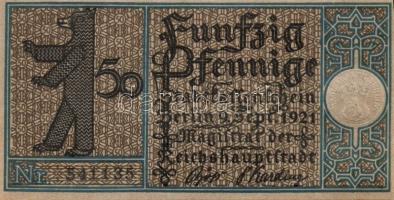 Funfzig
50 Pfennige
Stadtkassenschein
Berlin 9. Sept. 1921
Magistrat der
Reichshauptstadt
Nr. 541135